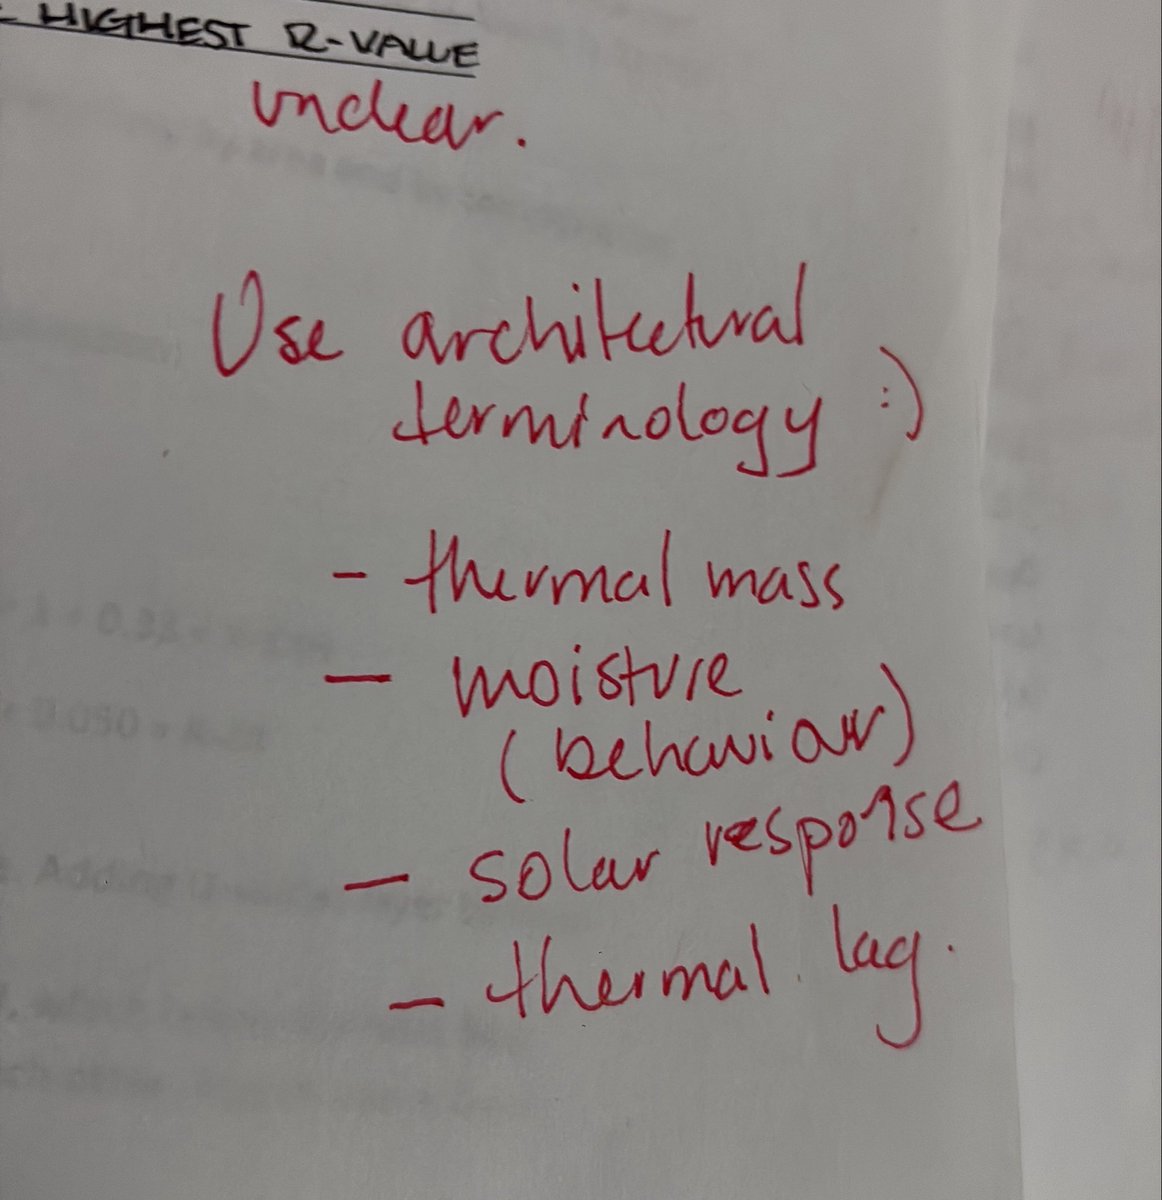 HIGHEST R-VALUE
unclear.
Use architectural
terminology :)
- thermal mass
- moisture
(behaviour)
- solar response
- thermal lag.